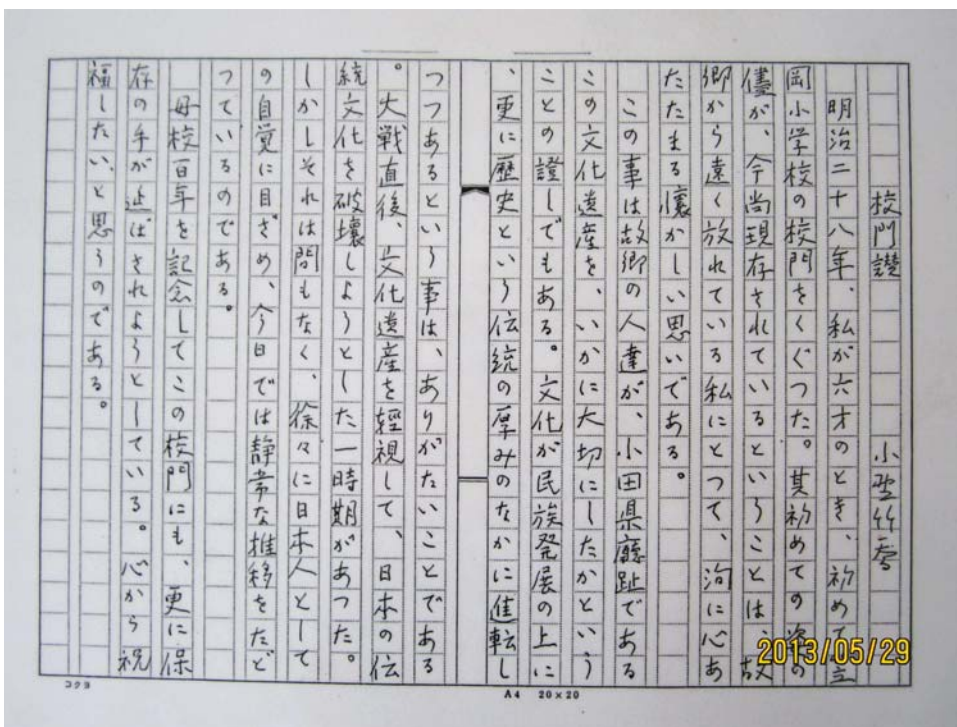 校門讃 小野竹喬
明治二十八年、私が六才のとき、初めて
岡小学校の校門をくぐつた。其初めての姿の
儘が、今尚現存されているということは、故
郷から遠く放れている私にとつて、洵に心あ
たたまる懐かしい思いである。
この事は故郷の人達が、小田県廳趾である
この文化遺産を、いかに大切にしたかという
ことの證しでもある。文化が民族発展の上に
、更に歴史という伝統の厚みのなかに進転し
つつあるという事は、ありがたいことである
。大戦直後、文化遺産を軽視して、日本の伝
統文化を破壊しようとした一時期があつた。
しかしそれは間もなく、徐々に日本人として
の自覚に目ざめ、今日では静常な推移をたど
つているのである。
母校百年を記念してこの校門にも、更に保
存の手が延ばされようとしている。心から祝
福したい、と思うのである。
コクヨ
A4 20×20
2013/05/29